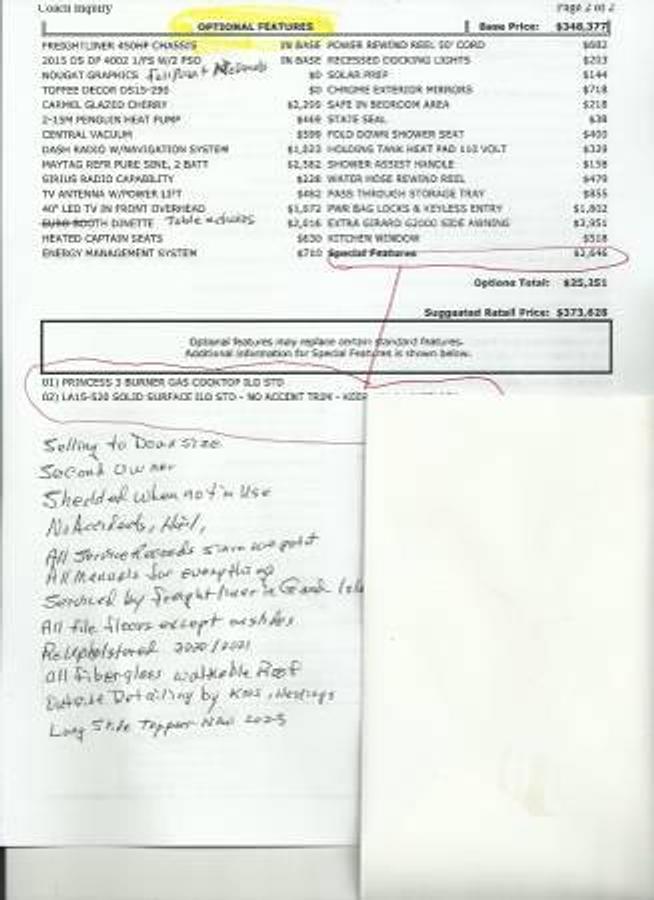 Coach Inquiry Page 2 of 2
OPTIONAL FEATURES Base Price: $348,377
FREIGHTLINER 450HP CHASSIS IN BASE POWER REWIND REEL 50' CORD $682
2015 DS DP 4002 1/FS W/2 PSO IN BASE RECESSED DOCKING LIGHTS $203
NOUGAT GRAPHICS Full Paint $0 SOLAR PREP $144
TOFFEE DECOR DS15-290 $0 CHROME EXTERIOR MIRRORS $718
CARMEL GLAZED CHERRY $2,299 SAFE IN BEDROOM AREA $218
2-15M PENGUIN HEAT PUMP $469 STATE SEAL $38
CENTRAL VACUUM $399 FOLD DOWN SHOWER SEAT $400
DASH RADIO W/NAVIGATION SYSTEM $1,023 HOLDING TANK HEAT PAD 110 VOLT $329
MAYTAG REFR PURE SINE, 2 BATT $2,582 SHOWER ASSIST HANDLE $158
SIRIUS RADIO CAPABILITY $228 WATER HOSE REWIND REEL $479
TV ANTENNA W/POWER LIFT $482 PASS THROUGH STORAGE TRAY $855
40" LED TV IN FRONT OVERHEAD $1,672 PWR BAG LOCKS & KEYLESS ENTRY $1,802
EURO BOOTH DINETTE Table $2,616 EXTRA GIRARD G2000 SIDE AWNING $3,951
HEATED CAPTAIN SEATS $630 KITCHEN WINDOW $318
ENERGY MANAGEMENT SYSTEM $710 Special Features $2,646
Options Total: $25,251
Suggested Retail Price: $373,628
Optional features may replace certain standard features.
Additional information for Special Features is shown below.
01) PRINCESS 3 BURNER GAS COOKTOP ILO STD
02) LA15-520 SOLID SURFACE ILO STD - NO ACCENT TRIM - KEEP
Selling to Down size
Second Owner
Shedded when not in Use
No Accidents, Hail,
All Service Records since
All Manuals for everything
Serviced by freightliner in Grand
All tile floors except
Reupholstered 2020/2021
all fiberglass walkable Roof
Outside Detailing by Hastings
Long Slide Topper New 2023